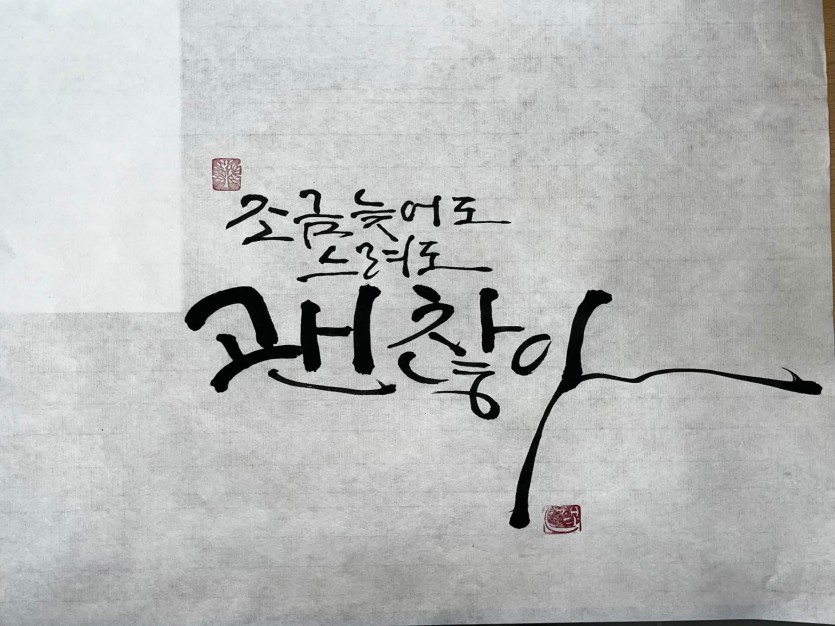 조금 늦어도
느려도
괜찮아